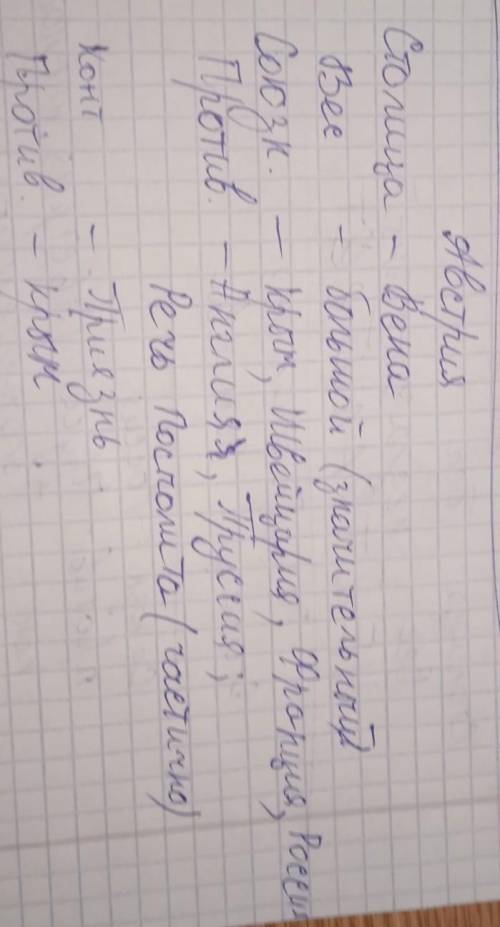 Австрия
Столица - Вена
Вес - большой (значительный)
Союзн. - Крым, Швейцария, Франция, Россия
Против. - Англия, Пруссия;
Речь Посполита (частично)
Конт - Приязнь
Против. - Крым